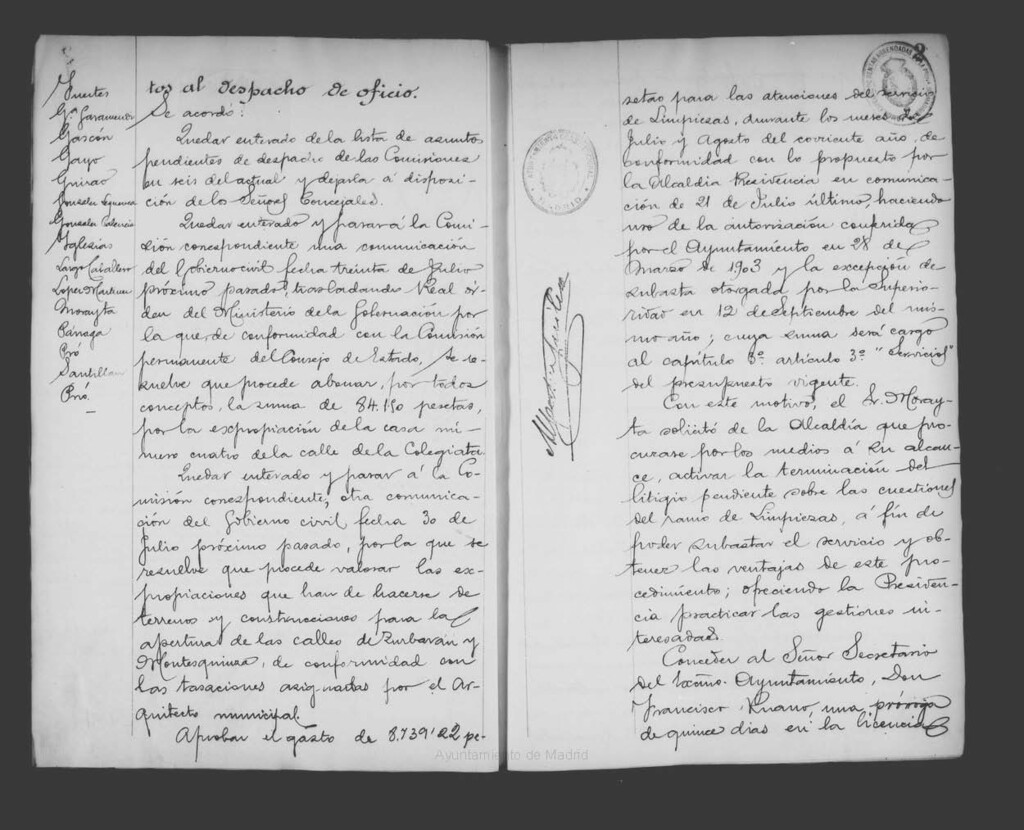 Fuertes
Gª. Garamendi
Gascón
Gayo
Guirao
Iglesias
Largo Caballero
Lopez Martinez
Morayta
Pánega
Pró
Santillan
Pró.
tos al despacho de oficio.
Se acordó:
Quedar enterado de la lista de asuntos
pendientes de despacho de las Comisiones
en seis del actual y dejarla á disposi-
ción de los Señores Concejales.
Quedar enterado y pasar á la Comi-
sión correspondiente una comunicación
del Gobierno civil fecha treinta de Julio
próximo pasado, trasladando Real ór-
den del Ministerio de la Gobernación por
la que, de conformidad con la Comisión
permanente del Consejo de Estado, se re-
suelve que procede abonar, por todos
conceptos, la suma de 84.190 pesetas,
por la expropiación de la casa nú-
mero cuatro de la calle de la Colegiata.
Quedar enterado y pasar á la Co-
misión correspondiente, otra comunica-
ción del Gobierno civil fecha 30 de
Julio próximo pasado, por la que se
resuelve que procede valorar las ex-
propiaciones que han de hacerse de
terrenos y construcciones para la
apertura de las calles de Zurbarán y
Montesquinza, de conformidad con
las tasaciones asignadas por el Ar-
quitecto municipal.
Aprobar el gasto de 8.739'22 pe-
2
setas para las atenciones del servicio
de Limpiezas, durante los meses de
Julio y Agosto del corriente año, de
conformidad con lo propuesto por
la Alcaldia Presidencia en comunica-
ción de 21 de Julio último, haciendo
uso de la autorización conferida
por el Ayuntamiento en 28 de
Marzo de 1903 y la excepción de
subasta otorgada por la Superio-
ridad en 12 de Septiembre del mis-
mo año; cuya suma será cargo
al capítulo 3º. artículo 3º. "Servicios"
del presupuesto vigente.
Con este motivo, el Sr. Moray-
ta solicitó de la Alcaldía que pro-
curase por los medios á su alcan-
ce, activar la terminación del
litigio pendiente sobre las cuestiones
del ramo de Limpiezas, á fin de
poder subastar el servicio y ob-
tener las ventajas de este pro-
cedimiento; ofreciendo la Presiden-
cia practicar las gestiones in-
teresadas.
Conceder al Señor Secretario
del Excmo. Ayuntamiento, Don
Francisco Ruano, una prórroga
de quince dias en la licencia
Ayuntamiento de Madrid